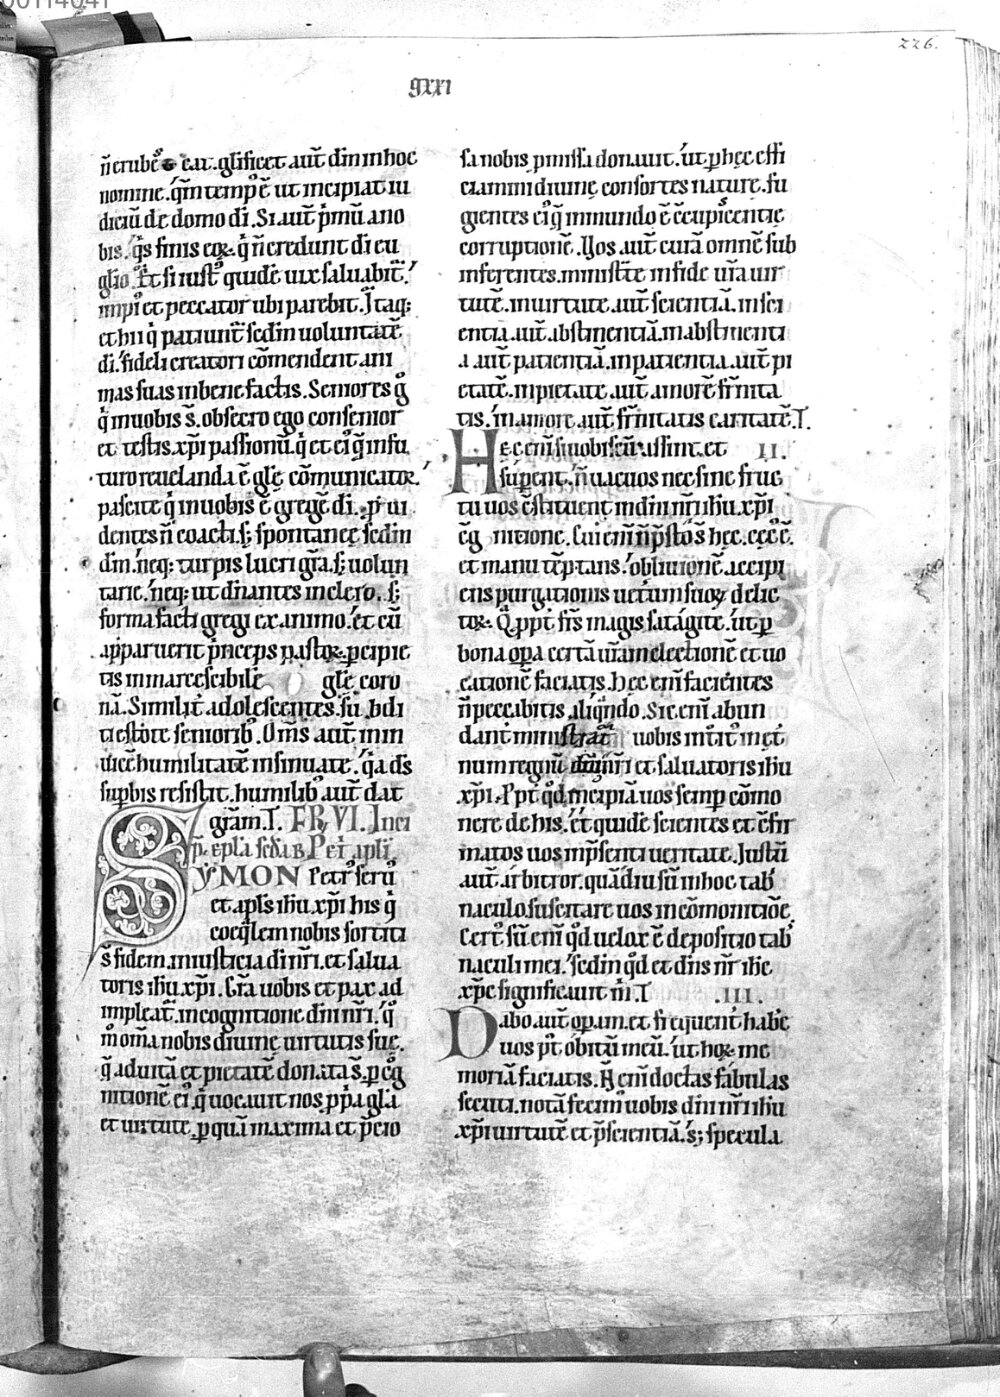 226.
gxxi
n̄ erubes̄cat. glīficet aut̄ dm̄ in hoc
nomine. qm̄ temp᷒ ē ut incipiat iu
diciū de domo dī. Si aut̄ pͥmū a no
bis. qͥs finis eoꝝ. qͥ n̄ credunt dī eu
glio. Et si iust᷒ quidē uix saluabit̄.
impi᷒ et peccator ubi parebit. Jtaq;
et hii qͥ patiunt̄ sedm uoluntatē
dī. fideli creatori cōmendent ani
mas suas in bene factis. Seniores gͦ
qͥ in uobis s̄. obsecro ego consenior
et testis xp̄i passionū. qͥ et ei᷒ q̄ in fu
turo reuelanda ē glę cōmunicator.
pascite qͥ in uobis ē gregē dī. p̄ui
dentes n̄ coacti. s; spontaneę sedm
dm̄. neq; turpis lucri grā. s; uolun
tarie. neq; ut dn̄antes in clero. s;
forma facti gregi ex animo. et cū
apparuerit pͥnceps pastoꝝ. ꝑcipie
tis inmarcescibilē glę coro
nā. Similit̄ adolescentes. subdi
ti estote seniorib᷒. Om̄s aut̄ inui
uicē humilitatē insinuate. qͥa ds̄
supbis resistit. humilib᷒ aut̄ dat
grām. T. FR VI. Inci
p̄. epl̄a scd̄a B Petͥ apl̄i
SYMON Petr᷒ seru᷒
et apl̄s ihū xp̄i his qͥ
coeq̄lem nobis sortiti
s̄ fidem. in iusticia dī nr̄i. et salua
toris ihū xp̄i. Gr̄a uobis et pax ad
impleat̄. in cognitione dn̄i nr̄i. qͦ
m̊ om̄a nobis diuinę uirtutis suę.
q̄ ad uitā et pietatē donata s̄. ꝑ cog
nitionē ei᷒. qͥ uocauit nos. ꝓpͥa glā
et uirtute. ꝑ quā maxima et p̄cio
sa nobis pmissa donauit. ut ꝑ hęc effi
ciamini diuinę consortes naturę. fu
gientes ei᷒ q̄ in mundo ē c̄cupiscentię
corruptionē. Uos aut̄ curā omnē sub
inferentes. ministrate in fide urā uir
tutē. in uirtute aut̄ scientiā. in sci
entia aut̄ abstinentiā. in abstinenti
a aut̄ patientiā. in patientia aut̄ pi
etatē. in pietate aut̄ amorē frn̄ita
tis. in amore aut̄ frn̄itatis caritatē. T.
Hęc eni si uobiscū assint et II.
supent. n̄ uacuos nec sine fruc
tu uos c̄stituent in dn̄i nr̄i ihū xp̄i
c̄g nitione. Cui eni n̄ p̄sto s̄ hęc. cęc᷒ ē.
et manu tēptans. obliuionē accipi
ens purgationis ueterum suoꝝ delic
toꝝ. Q̄ppt̄ frs̄ magis satagite. ut ꝑ
bona opa certā urām electionē et uo
cationē faciatis. hęc eni facientes
n̄ peccabitis aliqͣndo. Sic eni abun
dant ministrat̄ uobis introit᷒ in et
num regnū dn̄i nr̄i et saluatoris ihū
xp̄i. Ppt̄ qd̄ incipiā uos semp cōmo
nere de his. et quidē scientes et c̄fir
matos uos in p̄senti ueritate. Justū
aut̄ arbitror. quādiu sū in hoc tab̄
naculo. suscitare uos in cōmonitiōe.
Cert᷒ sū eni qd̄ uelox ē depositio tab̄
naculi mei. sedm qd̄ et dn̄s nr̄ ihc̄
xp̄c significauit m̄. T .III.
Dabo aut̄ opam. et frequent̄ habe
uos p᷒t obitū meū. ut hoꝝ me
moriā faciatis. N̄ eni doctas fabulas
secuti. notā fecim᷒ uobis dn̄i nr̄i ihū
xp̄i uirtutē et p̄scientiā. s; specula